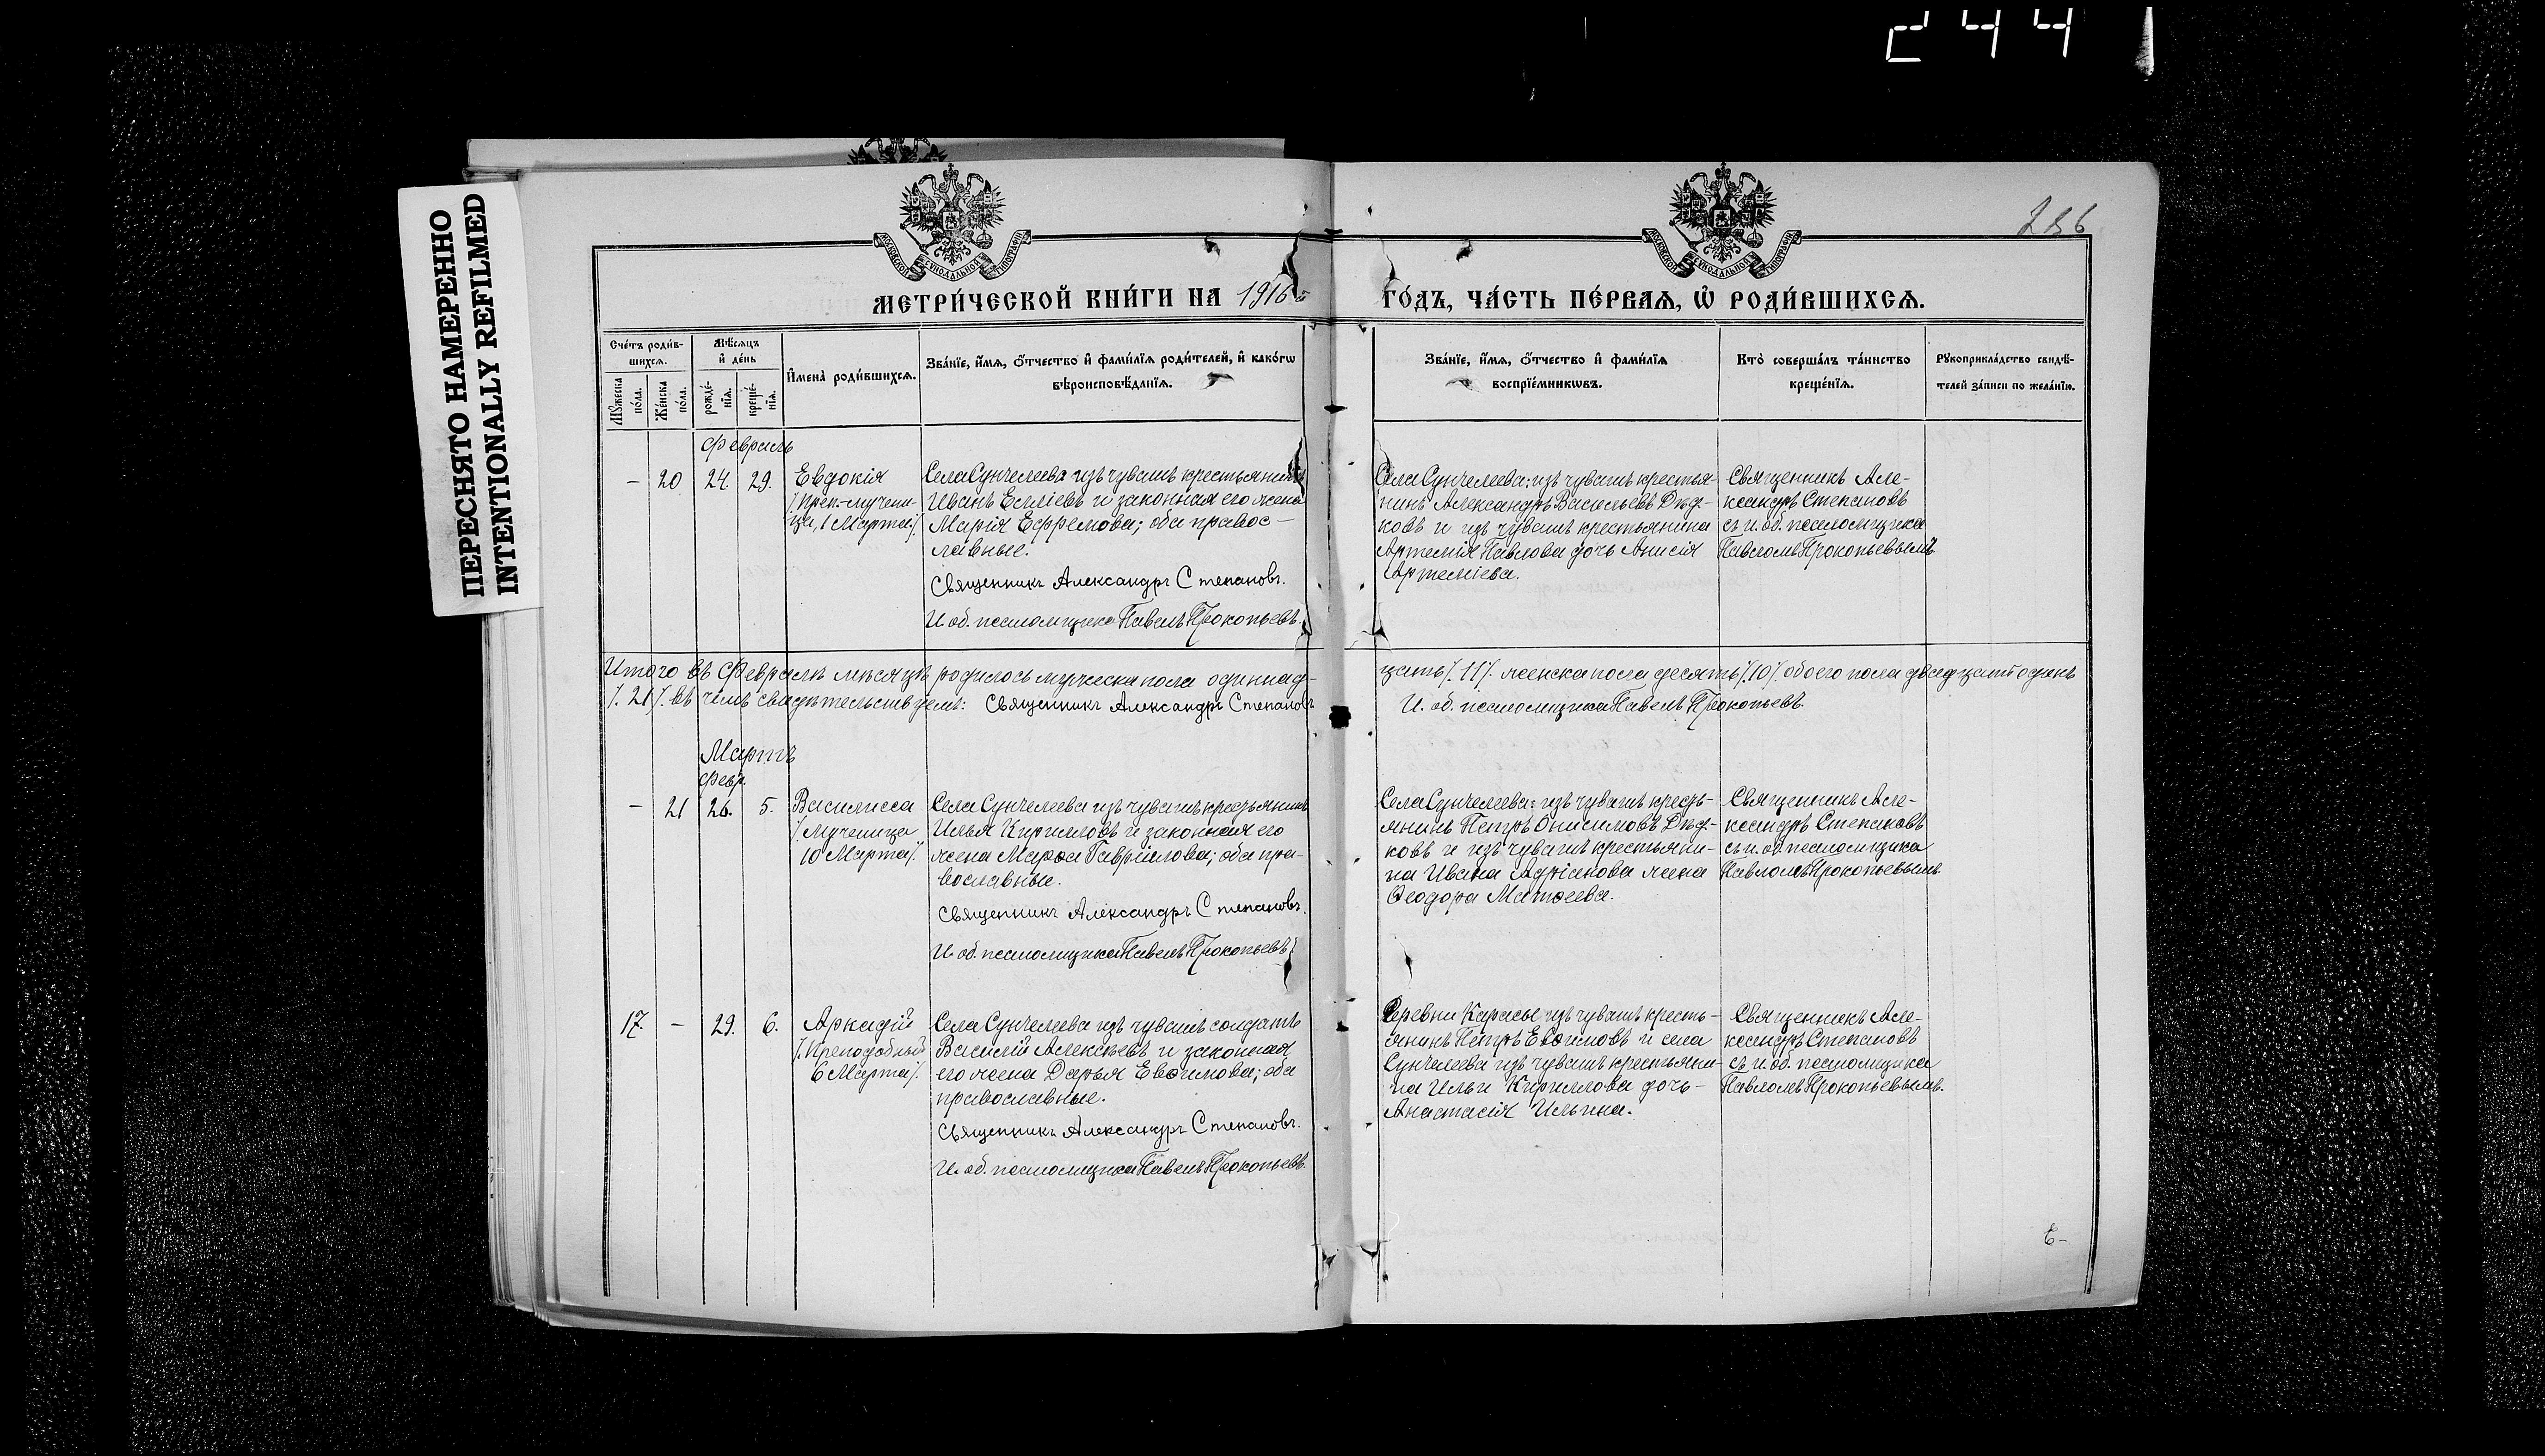 244
ПЕРЕСНЯТО НАМЕРЕННО
INTENTIONALLY REFILMED
МОСКОВСКОЙ СѴНОДАЛЬНОЙ ТИПОГРАФІИ
МОСКОВСКОЙ СѴНОДАЛЬНОЙ ТИПОГРАФІИ
МЕТРИ́ЧЕСКОЙ КНИ́ГИ НА 1916
ГО́ДЪ, ЧА́СТЬ ПЕ́РВАѦ, Ѡ҆ РОДИ́ВШИХСѦ.
Сче́тъ роди́в-
шихсѧ.
Мꙋ́жеска по́ла.
Же́нска по́ла.
Мѣ́сѧцъ
и҆ де́нь
рожде́-
нїѧ.
креще́-
нїѧ.
И҆мена̀ роди́вшихсѧ.
Зва́нїе, и҆́мѧ, ѻ҆́тчество и҆ фами́лїѧ роди́телей, и҆ како́гѡ
вѣроисповѣ́данїѧ.
Зва́нїе, и҆́мѧ, ѻ҆́тчество и҆ фами́лїѧ
воспрїе́мникѡвъ.
Кто̀ соверша́лъ та́инство
креще́нїѧ.
Рꙋкоприкла́дство свидѣ́-
телей за́писи по жела́нїю.
Февраль
– 20 24. 29.
Евдокія
/. Преп.-мучени-
ца, 1 Марта/.
Села Сунчелеева изъ чувашъ крестьянинъ
Иванъ Емміевъ и законная его жена
Марія Ефремова; оба правос-
лавные.
Священникъ Александръ Степановъ.
И. об. псаломщика Павелъ Прокопьевъ.
Села Сунчелеева: изъ чувашъ крестья-
нинъ Александръ Васильевъ Дѣд-
ковъ и изъ чувашъ крестьянина
Артемія Павлова дочь Анисія
Артеміева.
Священникъ Але-
ксандръ Степановъ
съ и. об. псаломщика
Павломъ Прокопьевымъ
Итого въ Февралѣ мѣсяцѣ родилось мужеска пола одиннад-
цать /. 11 /. женска пола десять /. 10 /. обоего пола двадцать одинъ
/. 21 /. въ чемъ свидѣтельствуемъ: Священникъ Александръ Степановъ
И. об. псаломщика Павелъ Прокопьевъ.
Мартъ
Февр.
– 21 26. 5.
Василисса
/. Мученица
10 Марта/.
Села Сунчелеева изъ чувашъ крестьянинъ
Илья Кирилловъ и законная его
жена Марѳа Гавріилова; оба пра-
вославные.
Священникъ Александръ Степановъ.
И. об. псаломщика Павелъ Прокопьевъ
Села Сунчелеева: изъ чувашъ кресть-
янинъ Петръ Онисимовъ Дѣд-
ковъ и изъ чувашъ крестьяни-
на Ивана Адріанова жена
Ѳеодора Матѳеева.
Священникъ Але-
ксандръ Степановъ
съ и. об. псаломщика
Павломъ Прокопьевымъ.
17. – 29. 6.
Аркадій
/. Преподобный
6 Марта/.
Села Сунчелеева изъ чувашъ солдатъ
Василій Алексѣевъ и законная
его жена Дарья Евѳимова; оба
православные.
Священникъ Александръ Степановъ.
И. об. псаломщика Павелъ Прокопьевъ.
Деревни Карасы изъ чувашъ кресть-
янинъ Петръ Евѳимовъ и села
Сунчелеева изъ чувашъ крестьяни-
на Ильи Кириллова дочь –
Анастасія Ильина.
Священникъ Але-
ксандръ Степановъ
съ и. об. псаломщика
Павломъ Прокопьевымъ.